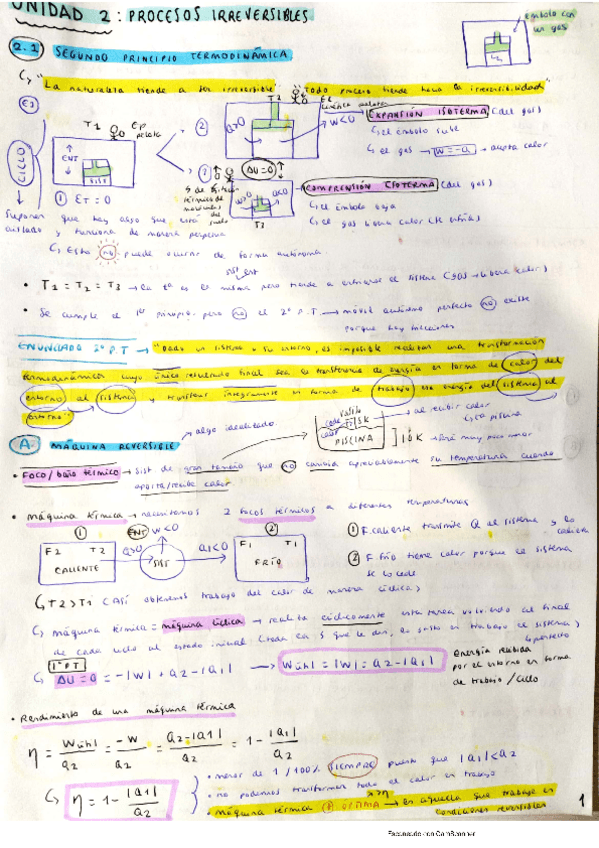 UNIDAD 2: PROCESOS IRREVERSIBLES
émbolo con
un gas
2.1 SEGUNDO PRINCIPIO TERMODINÁMICA
"La naturaleza tiende a ser irreversible" "Todo proceso tiende hacia la irreversibilidad"
T2
Ep
T1
pelota
ENT
SIST
CICLO
① Eτ = 0
② Q>0
W<0
EXPANSIÓN ISOTERMA (del gas)
el émbolo sube
el gas → W = -Q → capta calor
ΔU=0
③
T3
COMPRENSIÓN ISOTERMA (del gas)
el émbolo baja
el gas libera calor (se enfría)
Suponen que hay algo que está
aislado y funciona de manera perpetua
Esto no puede ocurrir de forma autónoma.
sist ent
• T1 = T2 = T3 → la tª es la misma pero tiende a enfriarse el sistema (gas → libera calor)
• Se cumple el 1er principio pero no el 2º P.T → móvil autónomo perfecto no existe
porque hay fricciones
ENUNCIADO 2º P.T → "Dado un sistema o su entorno, es imposible realizar una transformación
termodinámica cuyo único resultado final sea la transferencia de energía en forma de calor del
entorno al sistema y transferir íntegramente en forma de trabajo esa energía del sistema al
entorno"
A MÁQUINA REVERSIBLE → algo idealizado.
PISCINA
al recibir calor
la piscina
• FOCO/baño térmico → sist de gran tamaño que no cambia apreciablemente su temperatura cuando
aporta/recibe calor
• máquina térmica → necesitamos 2 focos térmicos a diferentes temperaturas
① F2 T2
CALIENTE
Q2>0
SIST
ENT W<0
Q1<0
② F1 T1
FRÍO
① F. caliente transmite Q al sistema y lo
② F. frío tiene calor porque el sistema
se lo cede
T2 > T1 (Así obtenemos trabajo del calor de manera cíclica)
máquina térmica = máquina cíclica → realiza cíclicamente esta tarea volviendo al final
de cada ciclo al estado inicial
1er P.T
ΔU = 0 = -|W| + Q2 - |Q1| → Wútil = |W| = Q2 - |Q1|
Energía recibida
por el entorno en forma
de trabajo / ciclo
• Rendimiento de una máquina térmica
η = Wútil/Q2 = -W/Q2 = Q2-|Q1|/Q2 = 1 - |Q1|/Q2
η = 1 - |Q1|/Q2
• menor de 1 / 100% SIEMPRE puesto que |Q1| < Q2
• no podemos transformar todo el calor en trabajo
• máquina térmica ÓPTIMA → es aquella que trabaja en
condiciones reversibles
1
Escaneado con CamScanner